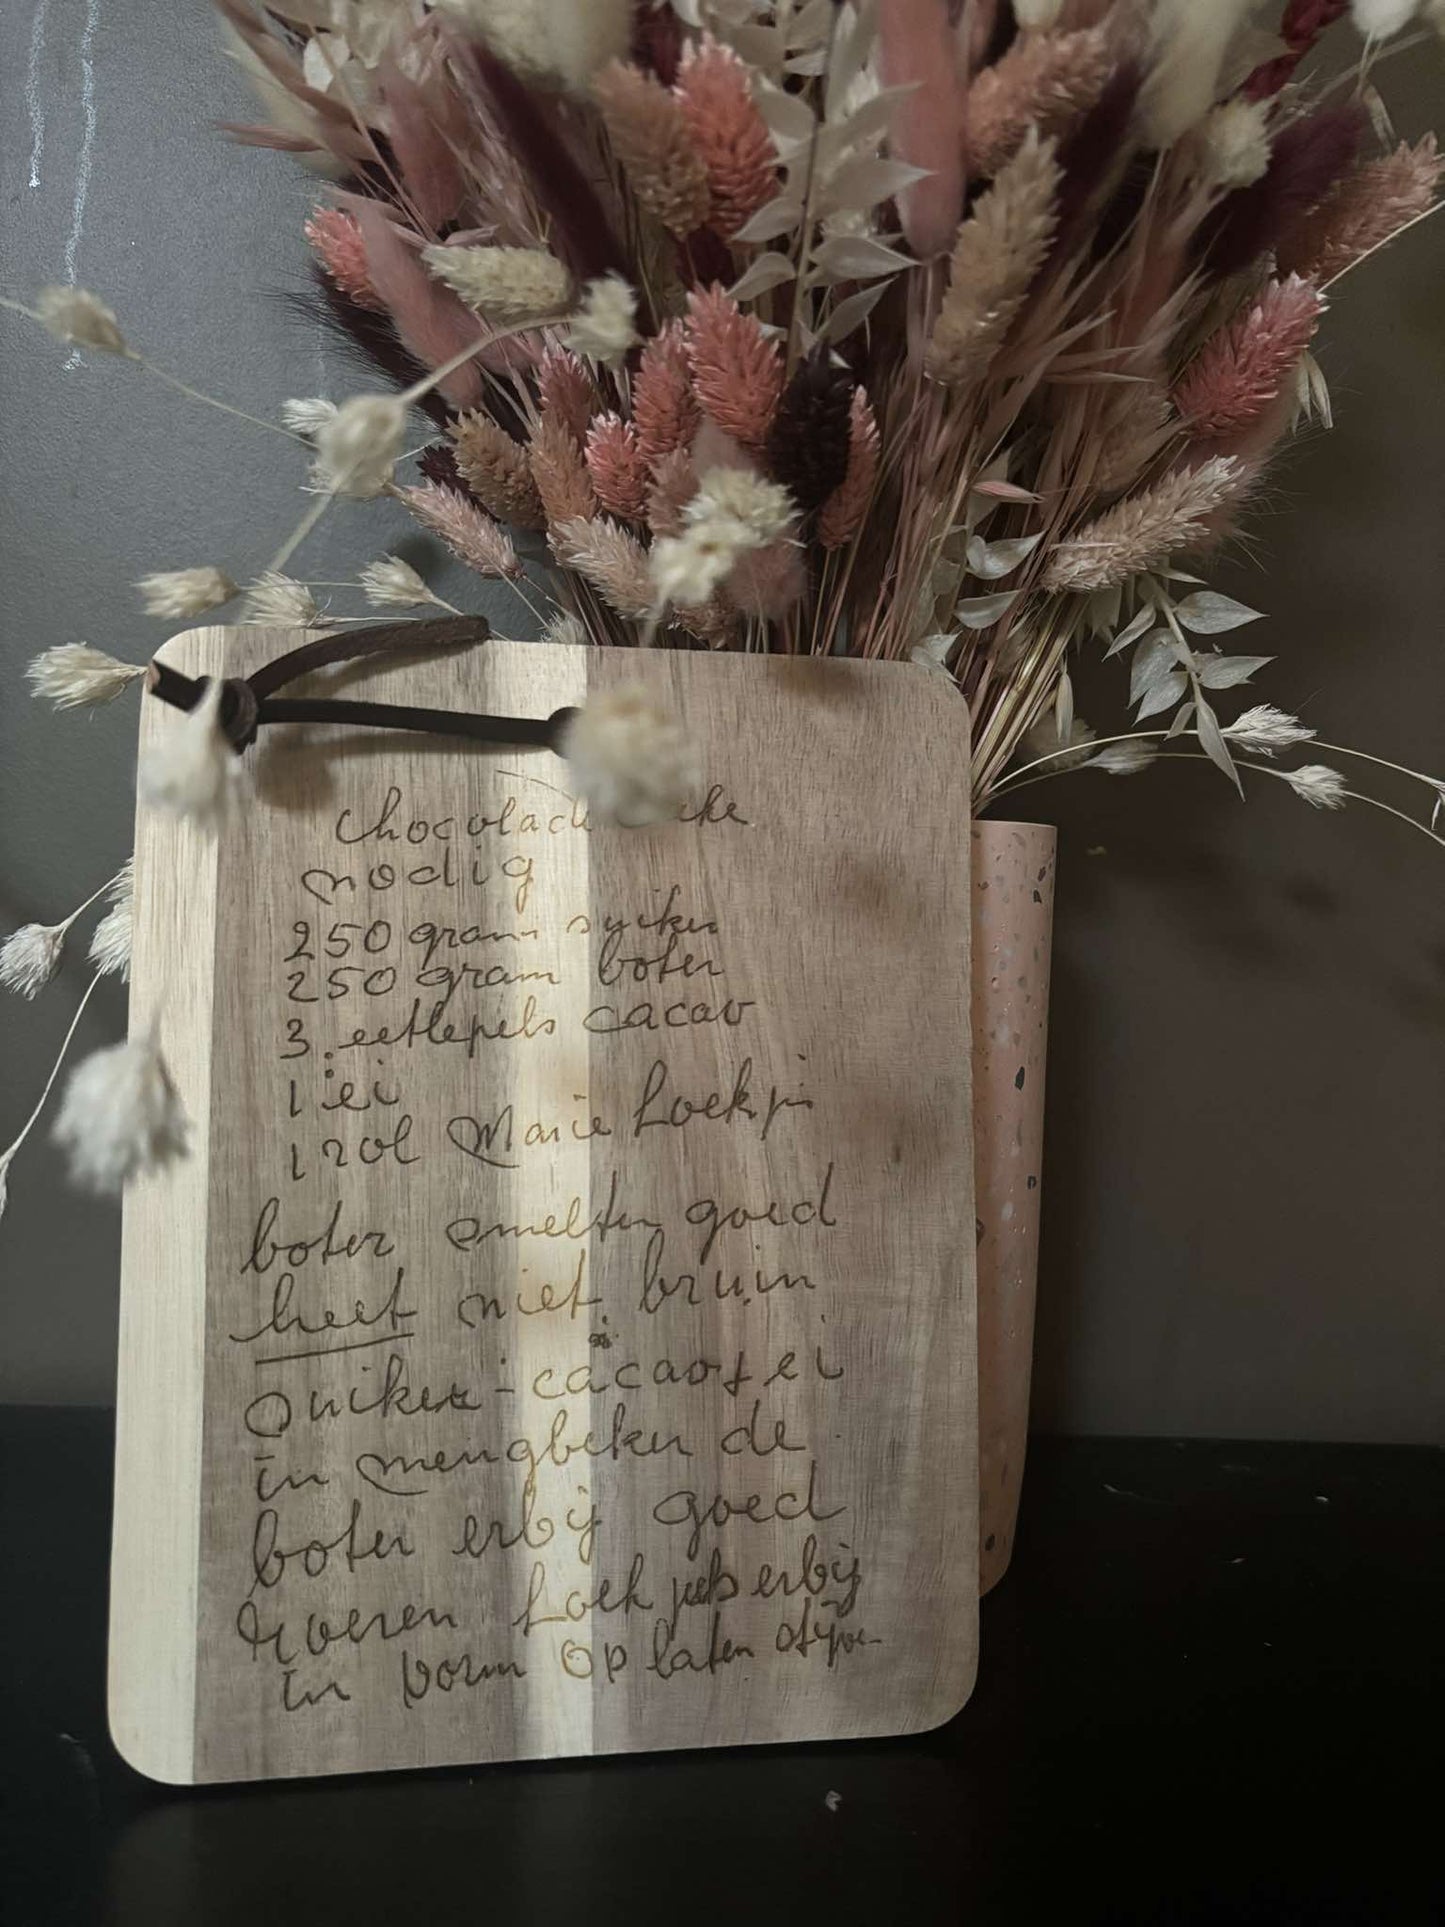 Chocolade cake
nodig
250 gram suiker
250 gram boter
3 eetlepels cacao
1 ei
1 rol Marie koekjes
boter smelten goed
heet niet bruin
suiker - cacao + ei
in mengbeker de
boter erbij goed
roeren koekjes erbij
in vorm op laten stijve